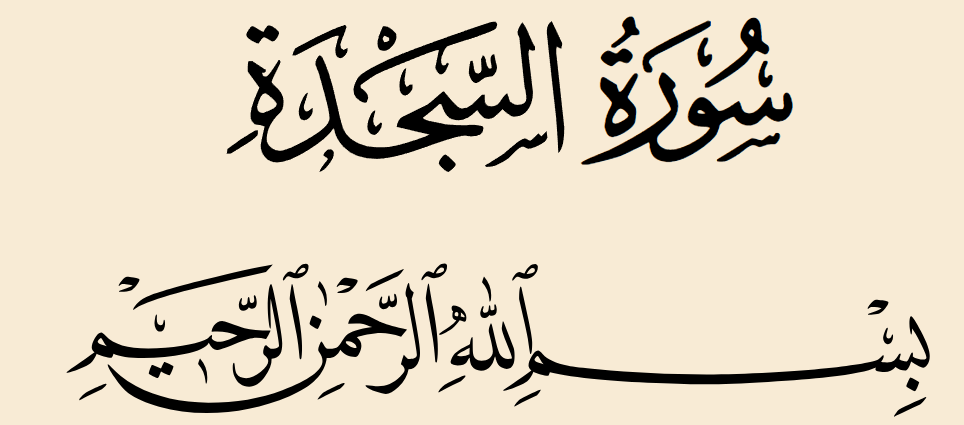 سُورَةُ السَّجْدَةِ
بِسْمِ ٱللَّهِ ٱلرَّحْمَٰنِ ٱلرَّحِيمِ